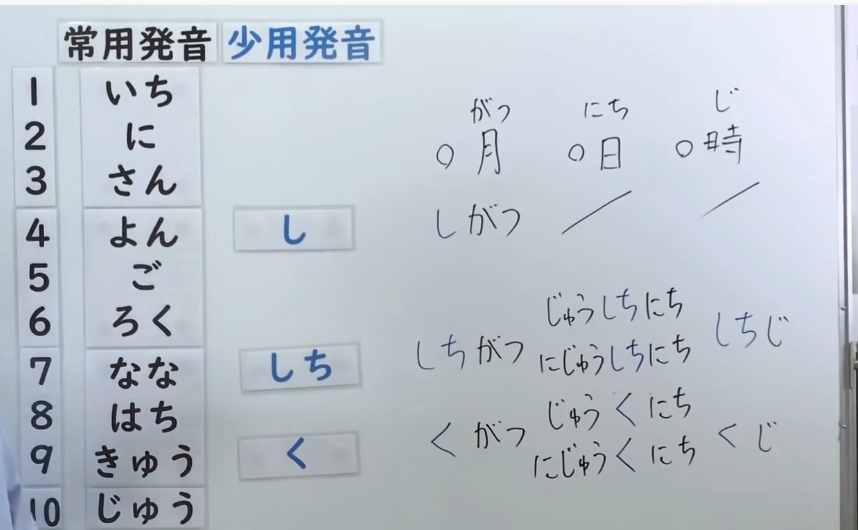 常用発音 少用発音
1 いち
2 に
3 さん
4 よん し
5 ご
6 ろく
7 なな しち
8 はち
9 きゅう く
10 じゅう
がつ にち じ
○月 ○日 ○時
しがつ ／ ／
しちがつ じゅうしちにち しちじ
にじゅうしちにち
くがつ じゅうくにち くじ
にじゅうくにち